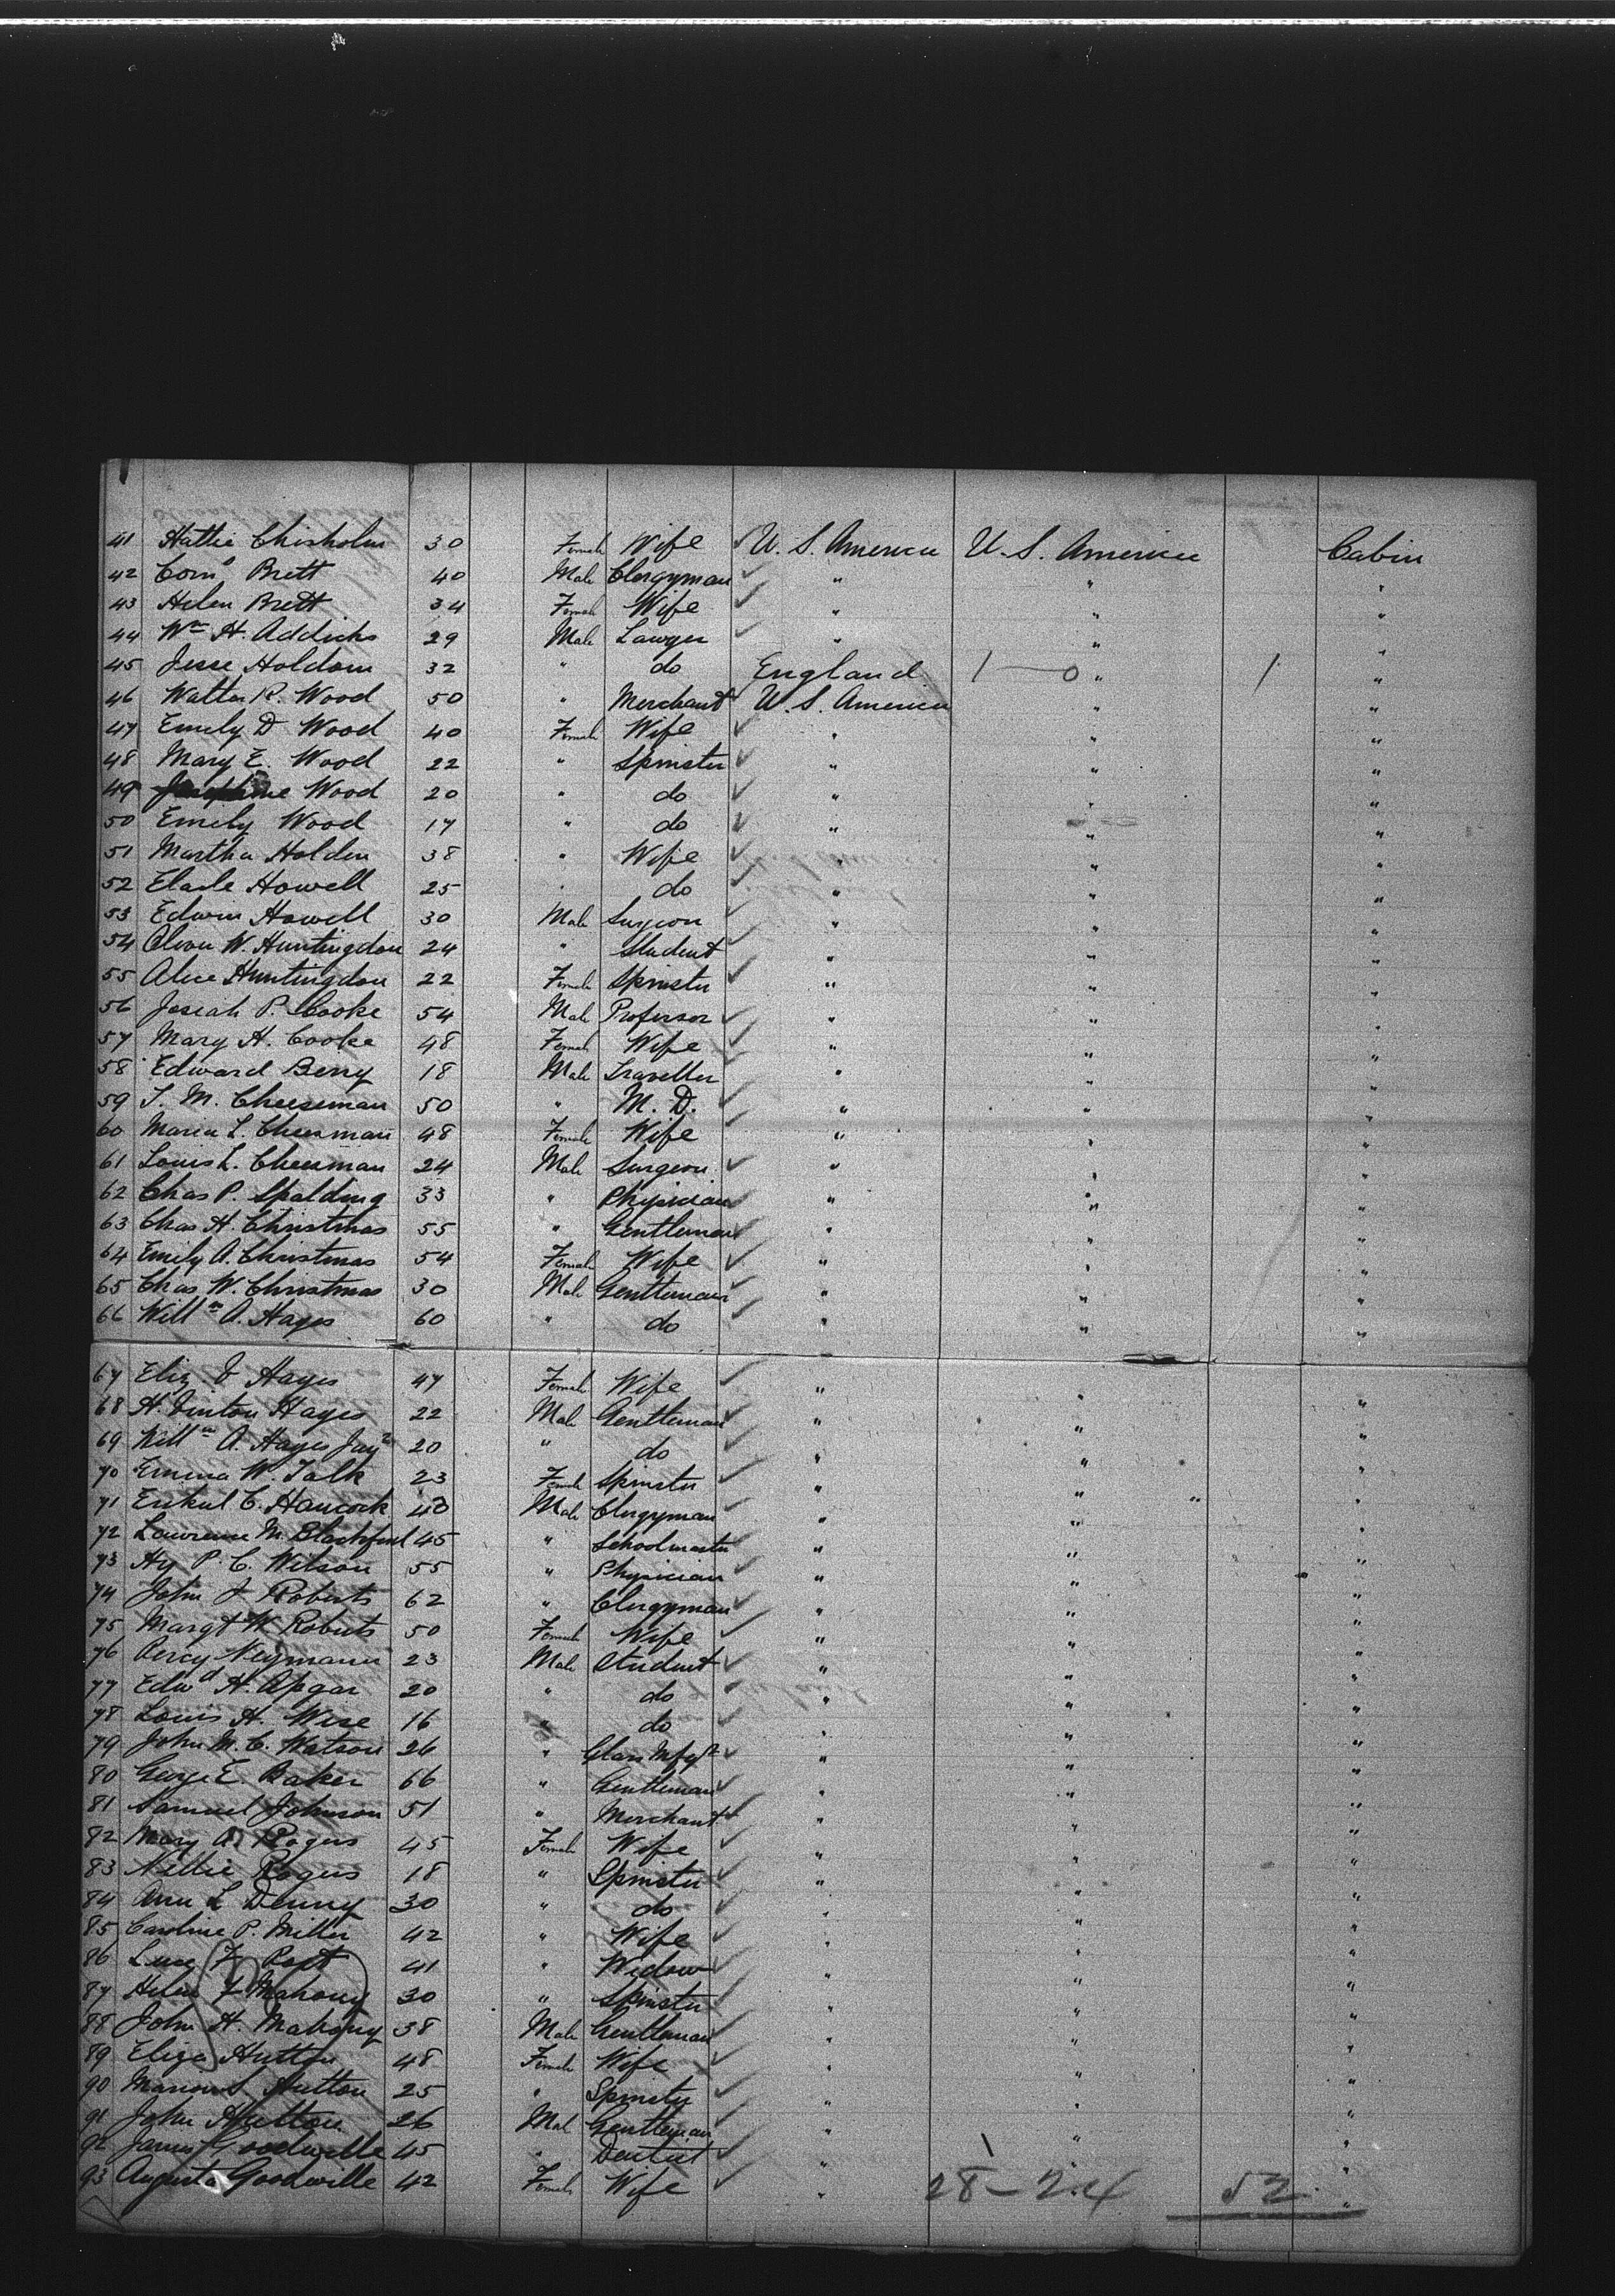 41 Hattie Chisholm 30 Female Wife U.S. America U.S. America Cabin
42 Corn⁸ Brett 40 Male Clergyman " " "
43 Helen Brett 34 Female Wife " " "
44 Wm H. Addicks 29 Male Lawyer " " "
45 Jesse Holdom 32 " do England 1—0 " 1 "
46 Walter R. Wood 50 " Merchant U.S. America " "
47 Emily D Wood 40 Female Wife " " "
48 Mary E. Wood 22 " Spinster " " "
49 Josephine Wood 20 " do " " "
50 Emily Wood 17 " do " " "
51 Martha Holden 38 " Wife " " "
52 Howell 25 " do " " "
53 Edwin Howell 30 Male Surgeon " " "
54 W. Huntingdon 24 " Student " " "
55 Alice Huntingdon 22 Female Spinster " " "
56 Josiah P. Cooke 54 Male Professor " " "
57 Mary H. Cooke 48 Female Wife " " "
58 Edward Berry 18 Male Traveller " " "
59 T. M. Cheeseman 50 " M. D. " " "
60 Maria L. Cheesman 48 Female Wife " " "
61 Louis L. Cheesman 24 Male Surgeon " " "
62 Chas P. Spalding 33 " Physician " " "
63 Chas H. Christmas 55 " Gentleman " " "
64 Emily A. Christmas 54 Female Wife " " "
65 Chas W. Christmas 30 Male Gentleman " " "
66 Willm A. Hayes 60 " do " " "
67 Eliz Hayes 47 Female Wife " " "
68 H. Vinton Hayes 22 Male Gentleman " " "
69 Willm A. Hayes Junr 20 " do " " "
70 Emma W. Talk 23 Female Spinster " " "
71 C. Hancock 40 Male Clergyman " " "
72 Lawrence M. Blackford 45 " Schoolmaster " " "
73 Hy P. C. Wilson 55 " Physician " " "
74 John J Roberts 62 " Clergyman " " "
75 Margt W. Roberts 50 Female Wife " " "
76 Percy Neymann 23 Male Student " " "
77 Edwd H. Apgar 20 " do " " "
78 Louis H. Wise 16 " do " " "
79 John M. C. Watson 26 " Glass Mfgr " " "
80 George E. Baker 66 " Gentleman " " "
81 Samuel Johnson 51 " Merchant " " "
82 Mary A. Rogers 45 Female Wife " " "
83 Nellie Rogers 18 " Spinster " " "
84 Ann L Denny 30 " do " " "
85 Caroline P. Miller 42 " Wife " " "
86 Lucy F. 41 " Widow " " "
87 Helen F Mahony 30 " Spinster " " "
88 John H. Mahony 38 Male Gentleman " " "
89 Eliza Hutton 48 Female Wife " " "
90 Marion S. Hutton 25 " Spinster " " "
91 John Hutton 26 Mal Gentleman " " "
92 James Goodwille 45 " Dentist " " "
93 Augusta Goodwille 42 Female Wife " 28-24 52 "